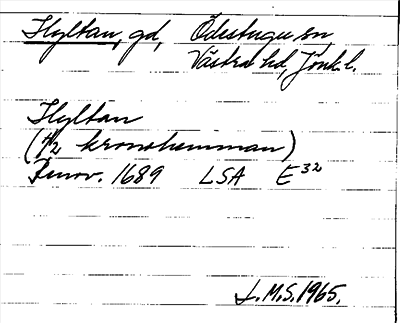 Hyltan, gd, Ödestugu sn
Västra hd, Jönk l.
Hyltan
(1/2 kronohemman)
Renov. 1689 LSA E³²
L.M.S. 1965.